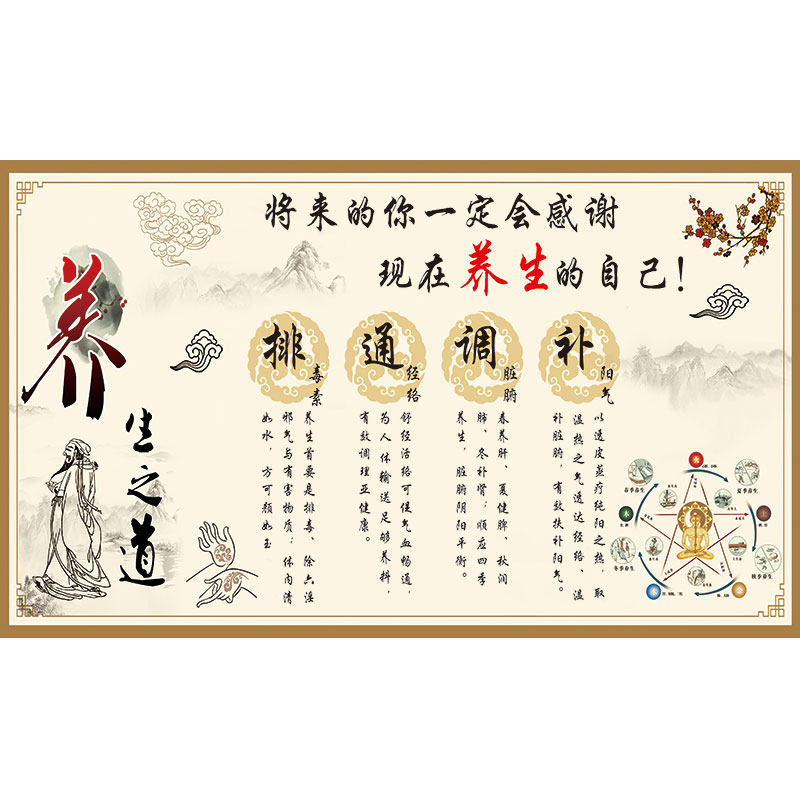 将来的你一定会感谢
现在养生的自己！
养
生之道
排
毒素
养生首要是排毒、除六淫
邪气与有害物质；体内清
如水，方可颜如玉
通
经络
舒经活络可使气血畅通，
为人体输送足够养料，
有效调理亚健康。
调
脏腑
春养肝、夏健脾、秋润
肺、冬补肾；顺应四季
养生，脏腑阴阳平衡。
补
阳气
以透皮蒸疗纯阳之热，取
温热之气透达经络、温
补脏腑，有效扶补阳气。
火
春季养生
夏季养生
木
土
冬季养生
秋季养生
水
金